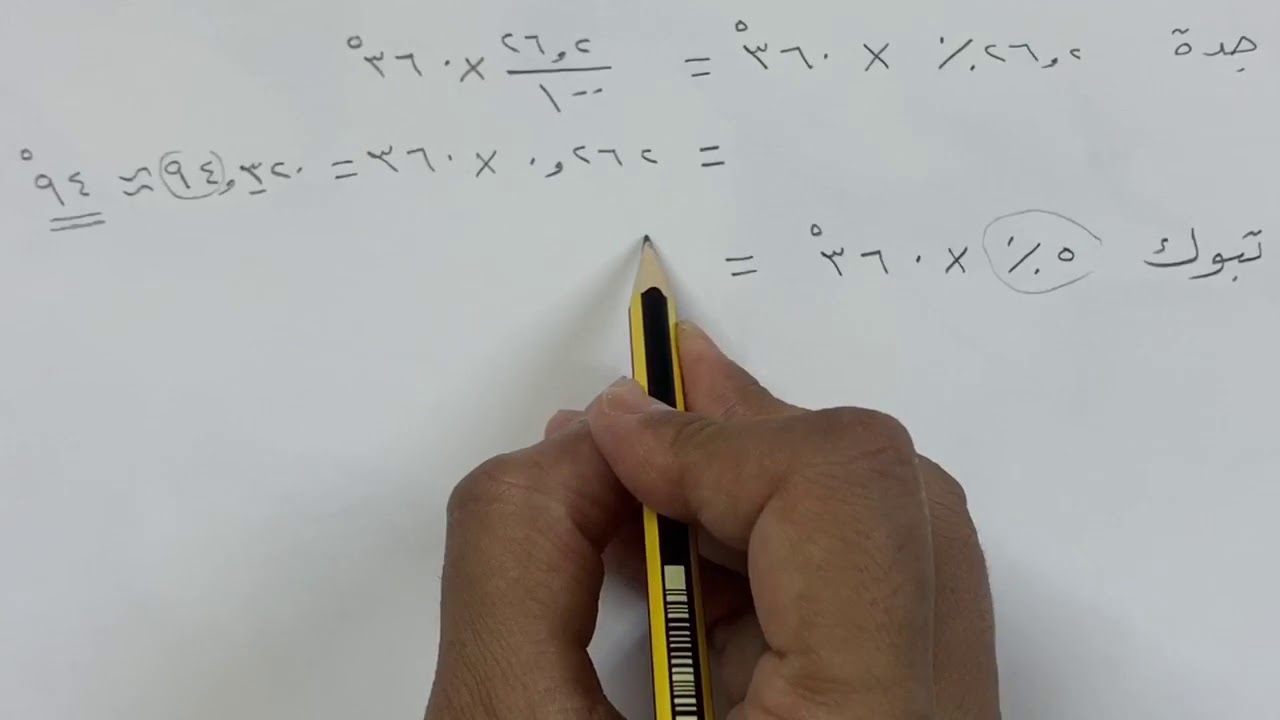 جدة ٢٦,٢٪ × ٣٦٠° = ٢٦,٢/١٠٠ × ٣٦٠°
= ٠,٢٦٢ × ٣٦٠ = ٩٤,٣٢٠ ≈ ٩٤°
تبوك ٥٪ × ٣٦٠° =